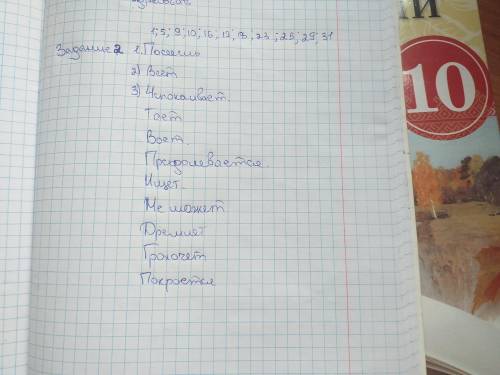 1;5; 9; 10; 16; 19; 13; 23; 25; 29; 31
Задание 2 1. Посеешь
2) Веет
3) Успокаивает.
Тает
Воет.
Преодолевается.
Ищет.
Не может
Дремлет
Грохочет
Покроется
КИ
10